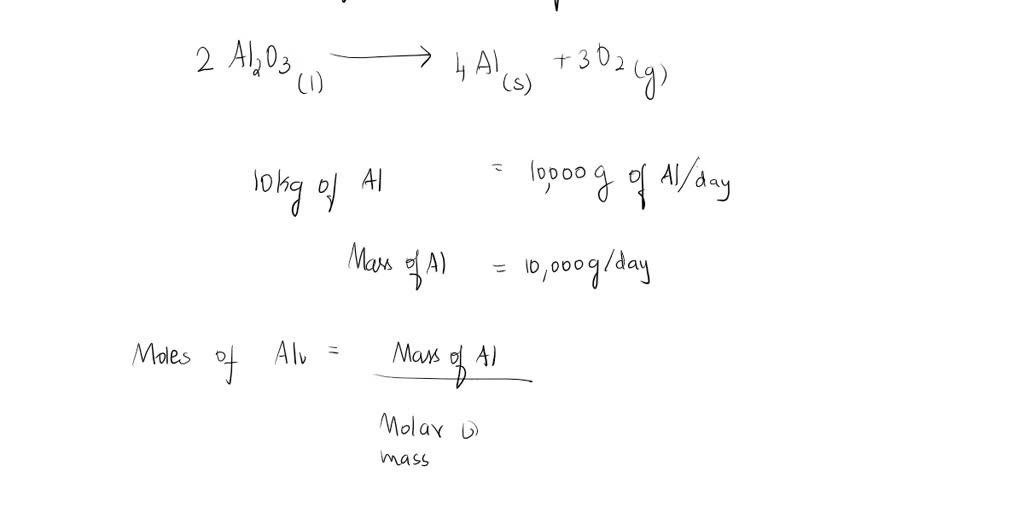 2 Al₂O₃ (l) ⟶ 4 Al (s) + 3O₂ (g)
10kg of Al = 10,000 g of Al/day
Mass of Al = 10,000g/day
Moles of Al = Mass of Al
Molar
mass